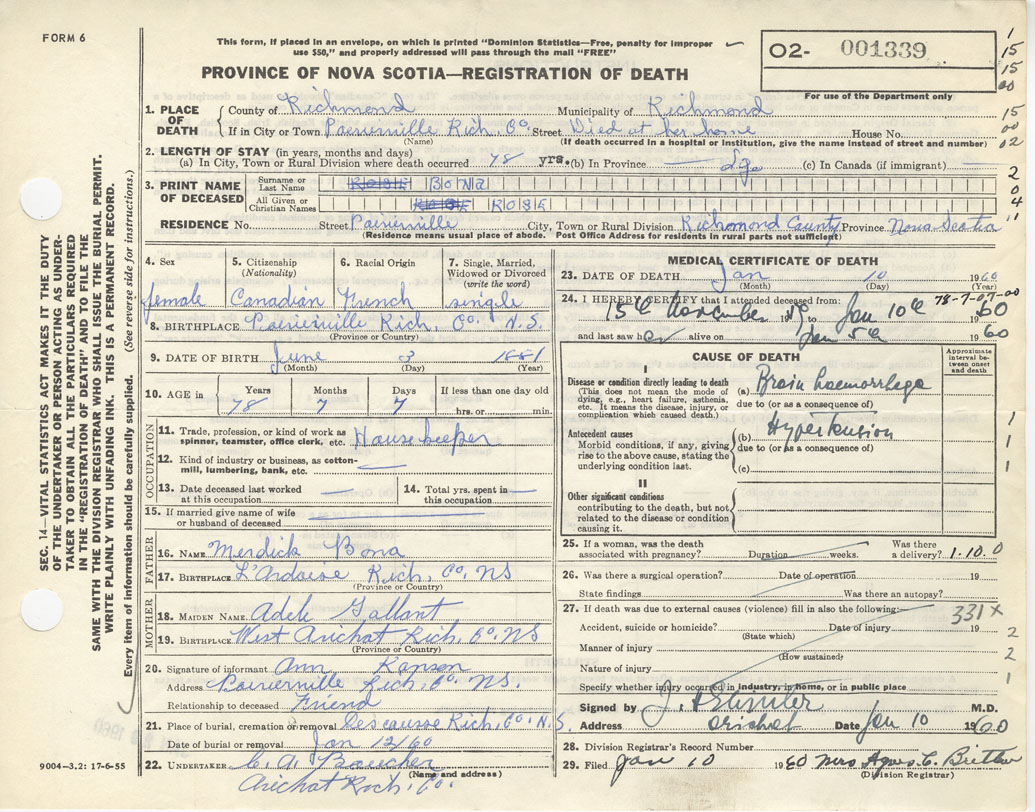 FORM 6
This form, if placed in an envelope, on which is printed "Dominion Statistics—Free, penalty for improper
use $50," and properly addressed will pass through the mail "FREE"
PROVINCE OF NOVA SCOTIA—REGISTRATION OF DEATH
O2- 001339
For use of the Department only
1. PLACE OF DEATH County of Richmond Municipality of Richmond
If in City or Town Poirierville Rich. Co. Street Died at her home House No.
(Name) (If death occurred in a hospital or institution, give the name instead of street and number)
2. LENGTH OF STAY (in years, months and days)
(a) In City, Town or Rural Division where death occurred 78 yrs. (b) In Province (c) In Canada (if immigrant)
3. PRINT NAME OF DECEASED Surname or Last Name BONA
All Given or Christian Names ROSE
RESIDENCE No. Street Poirierville City, Town or Rural Division Richmond County Province Nova Scotia
(Residence means usual place of abode. Post Office Address for residents in rural parts not sufficient)
4. Sex female
5. Citizenship (Nationality) Canadian
6. Racial Origin French
7. Single, Married, Widowed or Divorced (write the word) single
8. BIRTHPLACE Poirierville Rich. Co. N.S.
(Province or Country)
9. DATE OF BIRTH June 3 1881
(Month) (Day) (Year)
10. AGE in Years 78 Months 7 Days 7 If less than one day old hrs. or min.
OCCUPATION
11. Trade, profession, or kind of work as spinner, teamster, office clerk, etc. Housekeeper
12. Kind of industry or business, as cotton-mill, lumbering, bank, etc.
13. Date deceased last worked at this occupation
14. Total yrs. spent in this occupation
15. If married give name of wife or husband of deceased
FATHER
16. NAME Merdick Bona
17. BIRTHPLACE L'Ardoise Rich. Co. NS
(Province or Country)
MOTHER
18. MAIDEN NAME Adele Gallant
19. BIRTHPLACE West Arichat Rich. Co. NS
(Province or Country)
20. Signature of informant Ann
Address Poirierville Rich. Co. NS.
Relationship to deceased Friend
21. Place of burial, cremation or removal Descousse Rich. Co. N.S.
Date of burial or removal Jan 12/60
22. UNDERTAKER C. A. Boucher
(Name and address)
Arichat Rich. Co.
MEDICAL CERTIFICATE OF DEATH
23. DATE OF DEATH Jan 10 1960
(Month) (Day) (Year)
78-7-07-00
24. I HEREBY CERTIFY that I attended deceased from:
15th November to Jan 10th 60
and last saw her alive on Jan 5th 1960
CAUSE OF DEATH
Approximate interval between onset and death
I
Disease or condition directly leading to death
(This does not mean the mode of dying, e.g., heart failure, asthenia, etc. It means the disease, injury, or complication which caused death.)
(a) Brain haemorrhage
due to (or as a consequence of)
Antecedent causes
Morbid conditions, if any, giving rise to the above cause, stating the underlying condition last.
(b) Hypertension
due to (or as a consequence of)
(c)
II
Other significant conditions
contributing to the death, but not related to the disease or condition causing it.
25. If a woman, was the death associated with pregnancy? Duration weeks. Was there a delivery? 1.10.0
26. Was there a surgical operation? Date of operation 19
State findings Was there an autopsy?
27. If death was due to external causes (violence) fill in also the following: 331x
Accident, suicide or homicide? Date of injury 19
(State which)
Manner of injury
(How sustained)
Nature of injury
Specify whether injury occurred in industry, in home, or in public place
Signed by M.D.
Address Arichat Date Jan 10 1960
28. Division Registrar's Record Number
29. Filed Jan 10 1960 Mrs Agnes C.
(Division Registrar)
SEC. 14—VITAL STATISTICS ACT MAKES IT THE DUTY
OF THE UNDERTAKER OR PERSON ACTING AS UNDER-
TAKER TO OBTAIN ALL THE PARTICULARS REQUIRED
IN THE "REGISTRATION OF DEATH" AND TO FILE THE
SAME WITH THE DIVISION REGISTRAR WHO SHALL ISSUE THE BURIAL PERMIT.
WRITE PLAINLY WITH UNFADING INK. THIS IS A PERMANENT RECORD.
Every item of information should be carefully supplied. (See reverse side for instructions.)
9004-3.2: 17-6-55